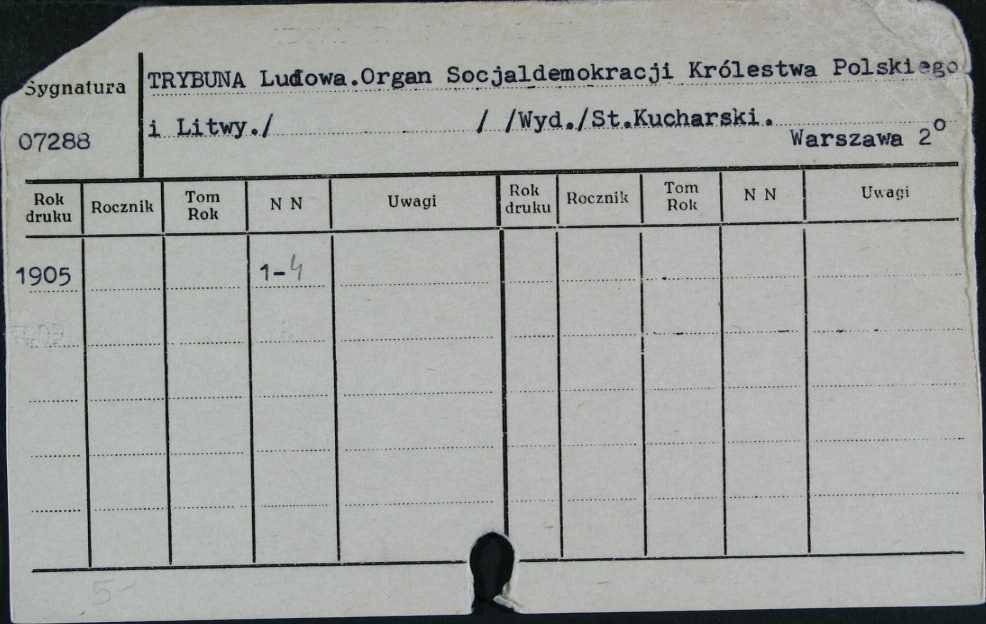 Sygnatura
TRYBUNA Ludowa.Organ Socjaldemokracji Królestwa Polskiego
07288
i Litwy./ / /Wyd./St.Kucharski.
Warszawa 2°
Rok druku Rocznik Tom Rok N N Uwagi Rok druku Rocznik Tom Rok N N Uwagi
1905 1-4
5-